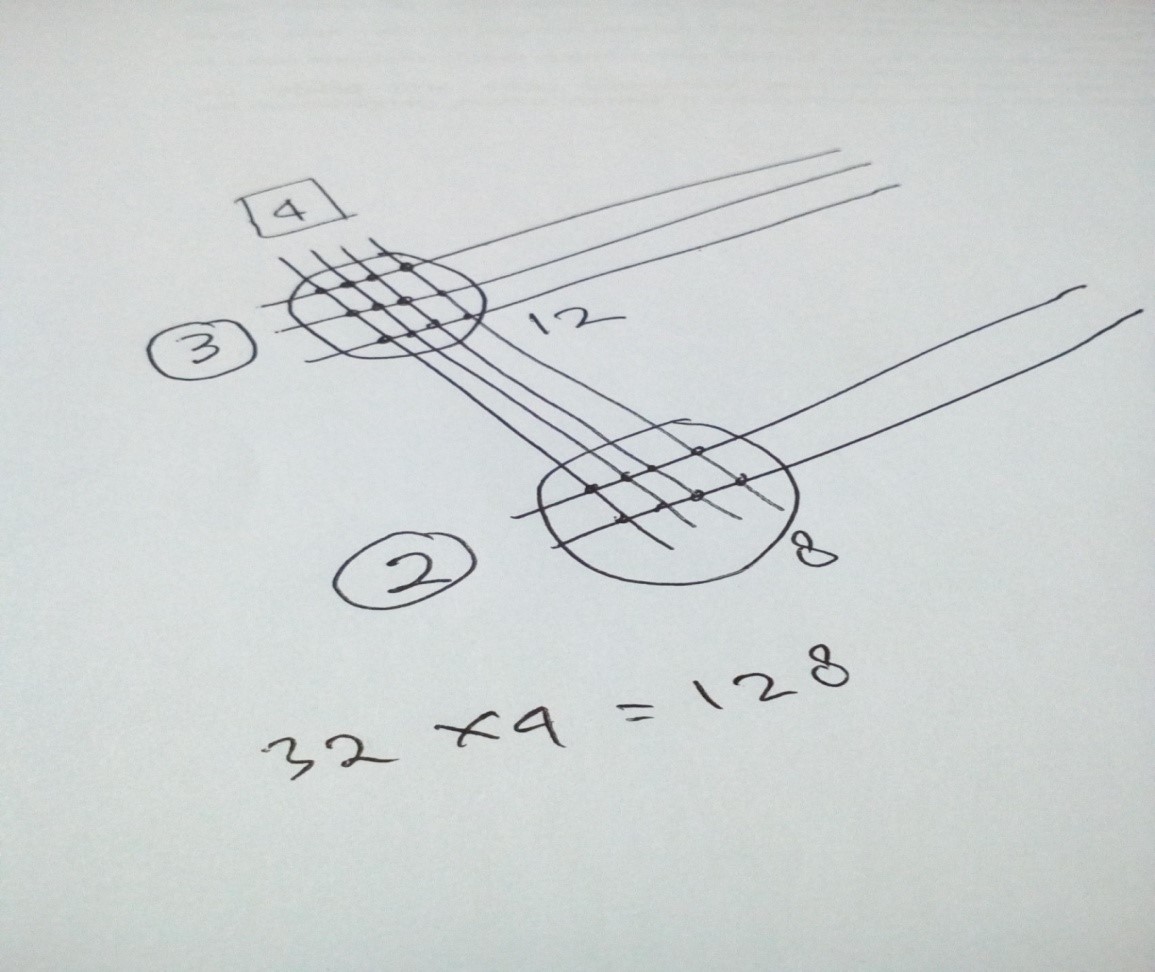 4
3
12
2
8
32 × 4 = 128